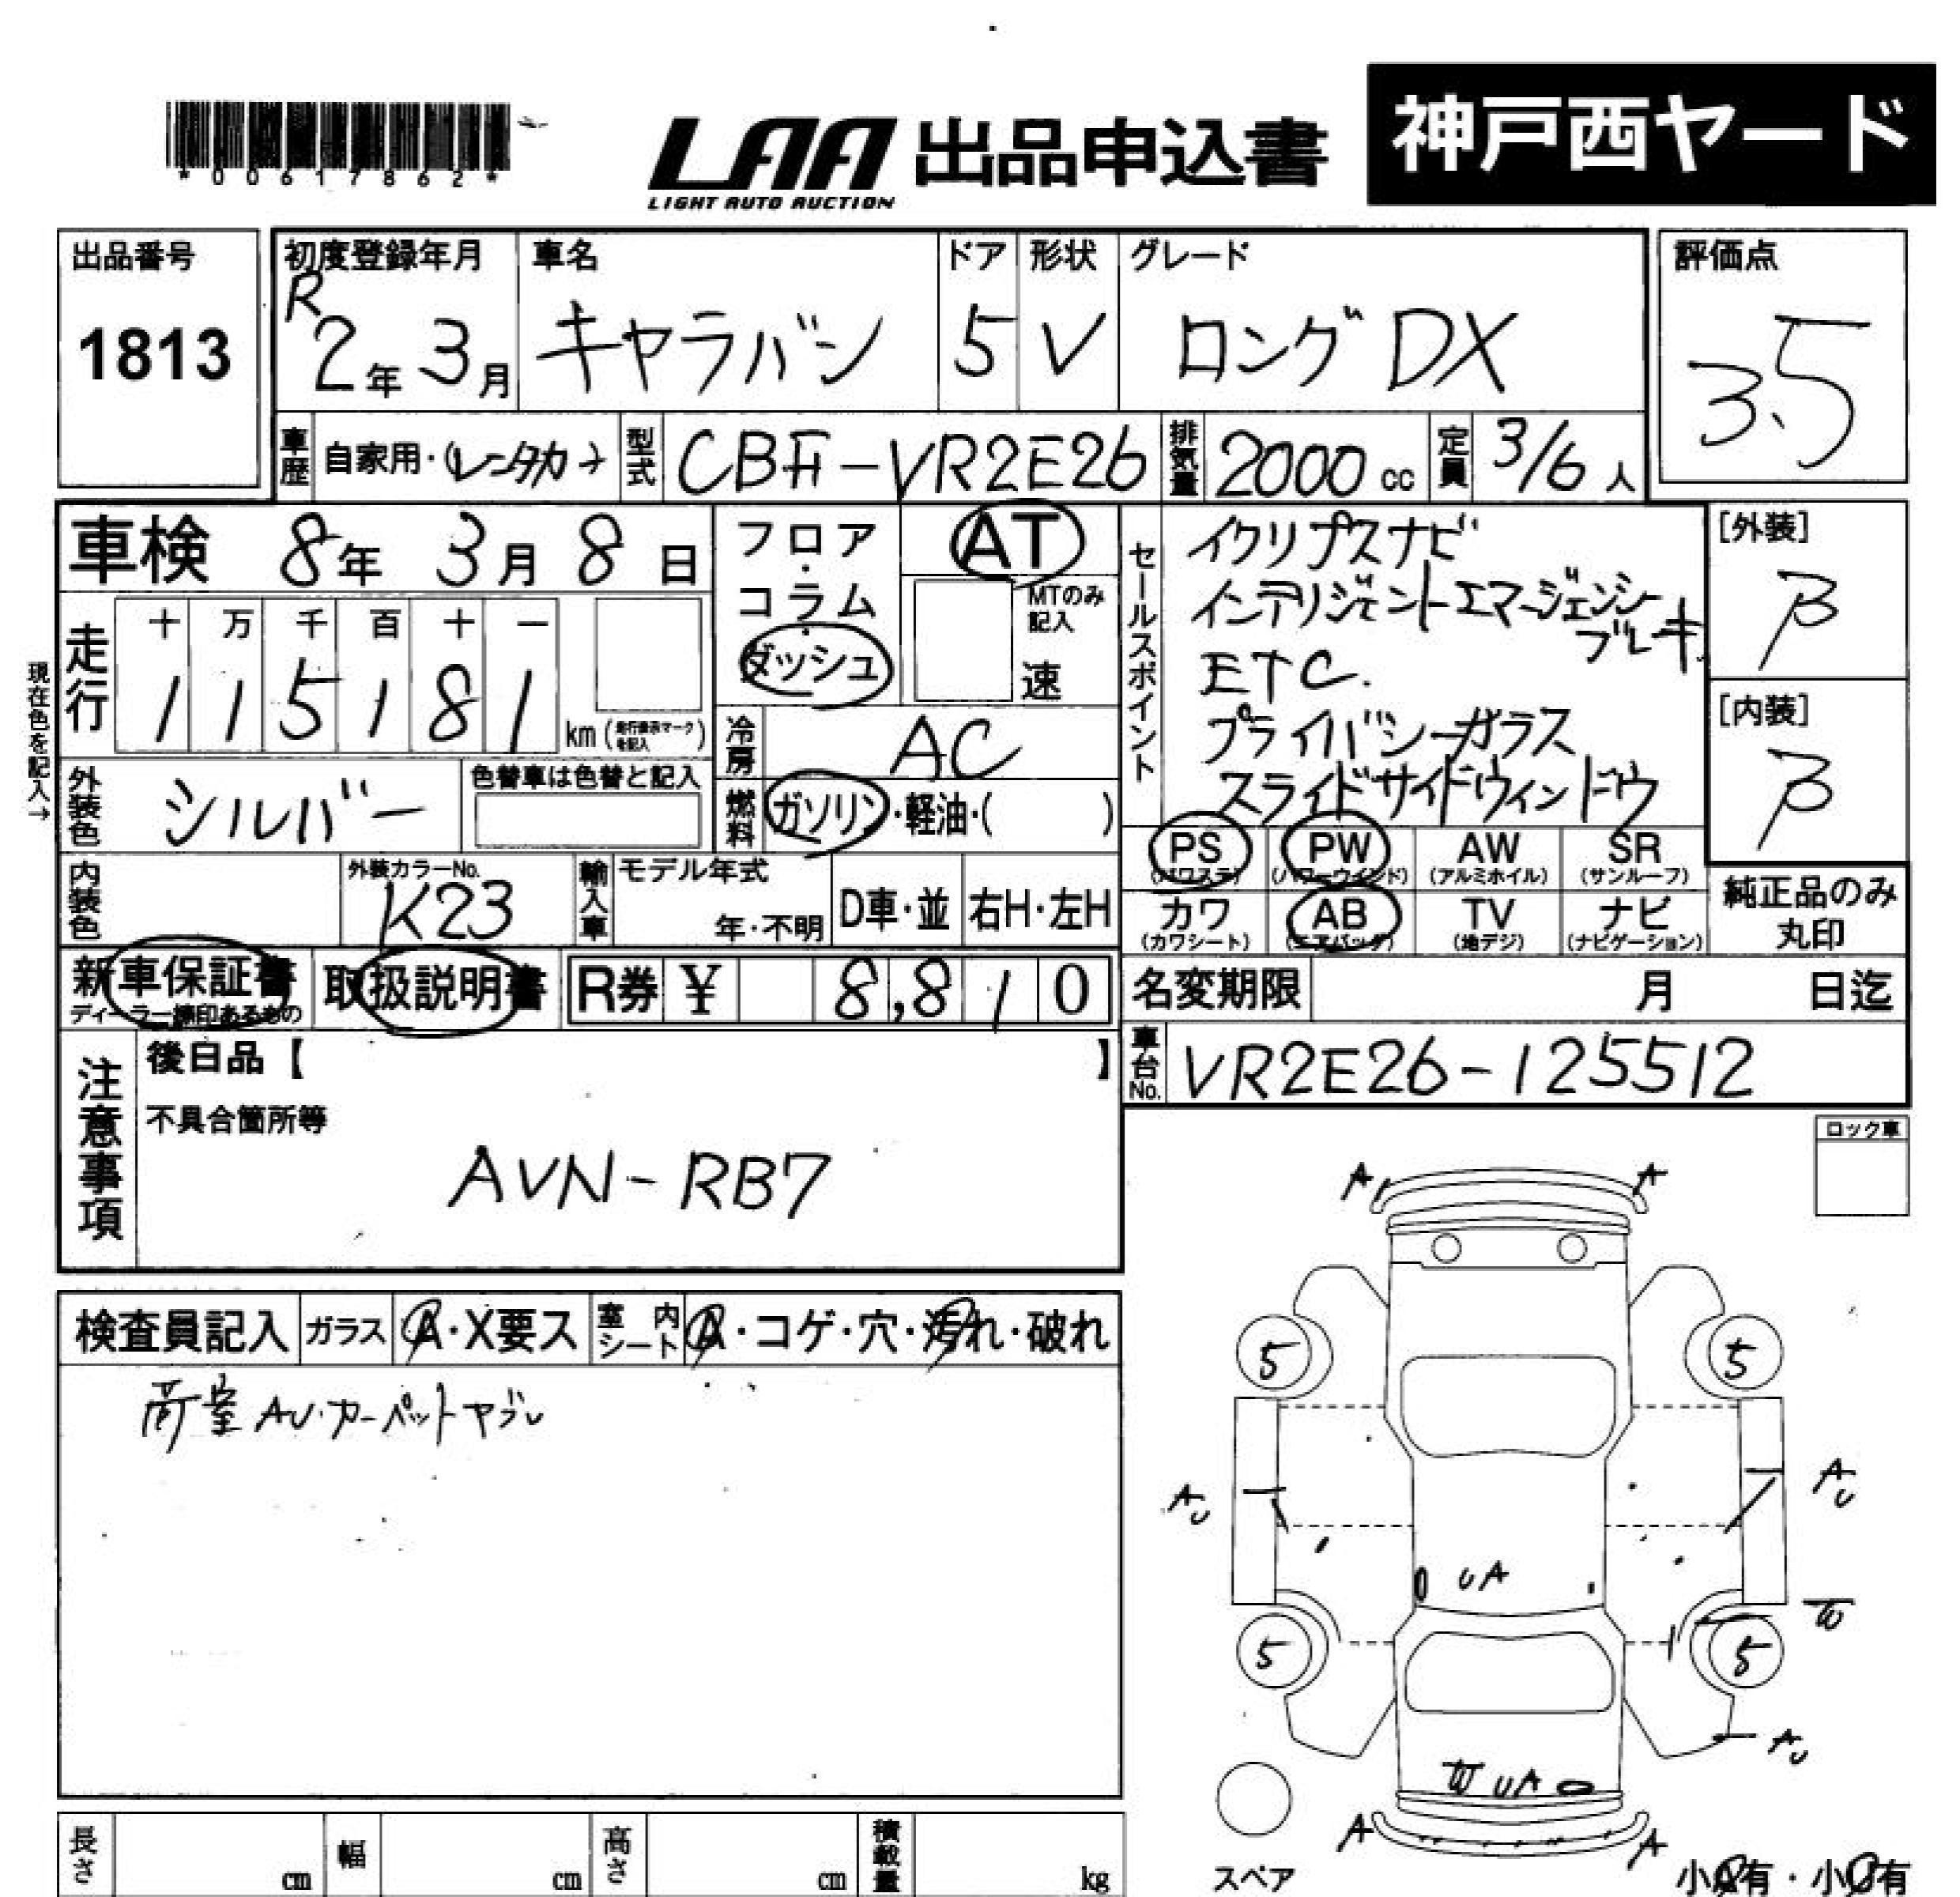 *00617862*
LAA 出品申込書
LIGHT AUTO AUCTION
神戸西ヤード
出品番号
1813
初度登録年月
R2年3月
車名
キャラバン
ドア
5
形状
V
グレード
ロングDX
評価点
3.5
車歴
自家用・(レンタカー)
型式
CBF-VR2E26
排気量
2000cc
定員
3/6人
車検 8年3月8日
フロア・コラム・ダッシュ
AT
MTのみ記入
速
セールスポイント
イクリプスナビ
インテリジェントエマージェンシー
ブレーキ
ETC.
プライバシーガラス
スライドサイドウィンドウ
[外装]
B
[内装]
B
現在色を記入→
走行
十 万 千 百 十 一
1 1 5 1 8 1 km(走行表示マークを記入)
冷房
AC
外装色
シルバー
色替車は色替と記入
燃料
ガソリン・軽油・( )
PS
(パワステ)
PW
(パワーウインド)
AW
(アルミホイル)
SR
(サンルーフ)
カワ
(カワシート)
AB
(エアバッグ)
TV
(地デジ)
ナビ
(ナビゲーション)
純正品のみ
丸印
内装色
外装カラーNo.
K23
輸入車
モデル年式
年・不明
D車・並
右H・左H
新車保証書
ディーラー捺印あるもの
取扱説明書
R券 ¥ 8,810
名変期限 月 日迄
車台No.
VR2E26-125512
注意事項
後日品【 】
不具合箇所等
AVN-RB7
ロック車
検査員記入
ガラス
A・X要ス
室内シート
A・コゲ・穴・汚れ・破れ
荷室AU・カーペットヤブレ
A A
5 5
AU AU
UA
W
5 5
AU
W UA
A A
スペア
小A有・小U有
長さ cm
幅 cm
高さ cm
積載量 kg